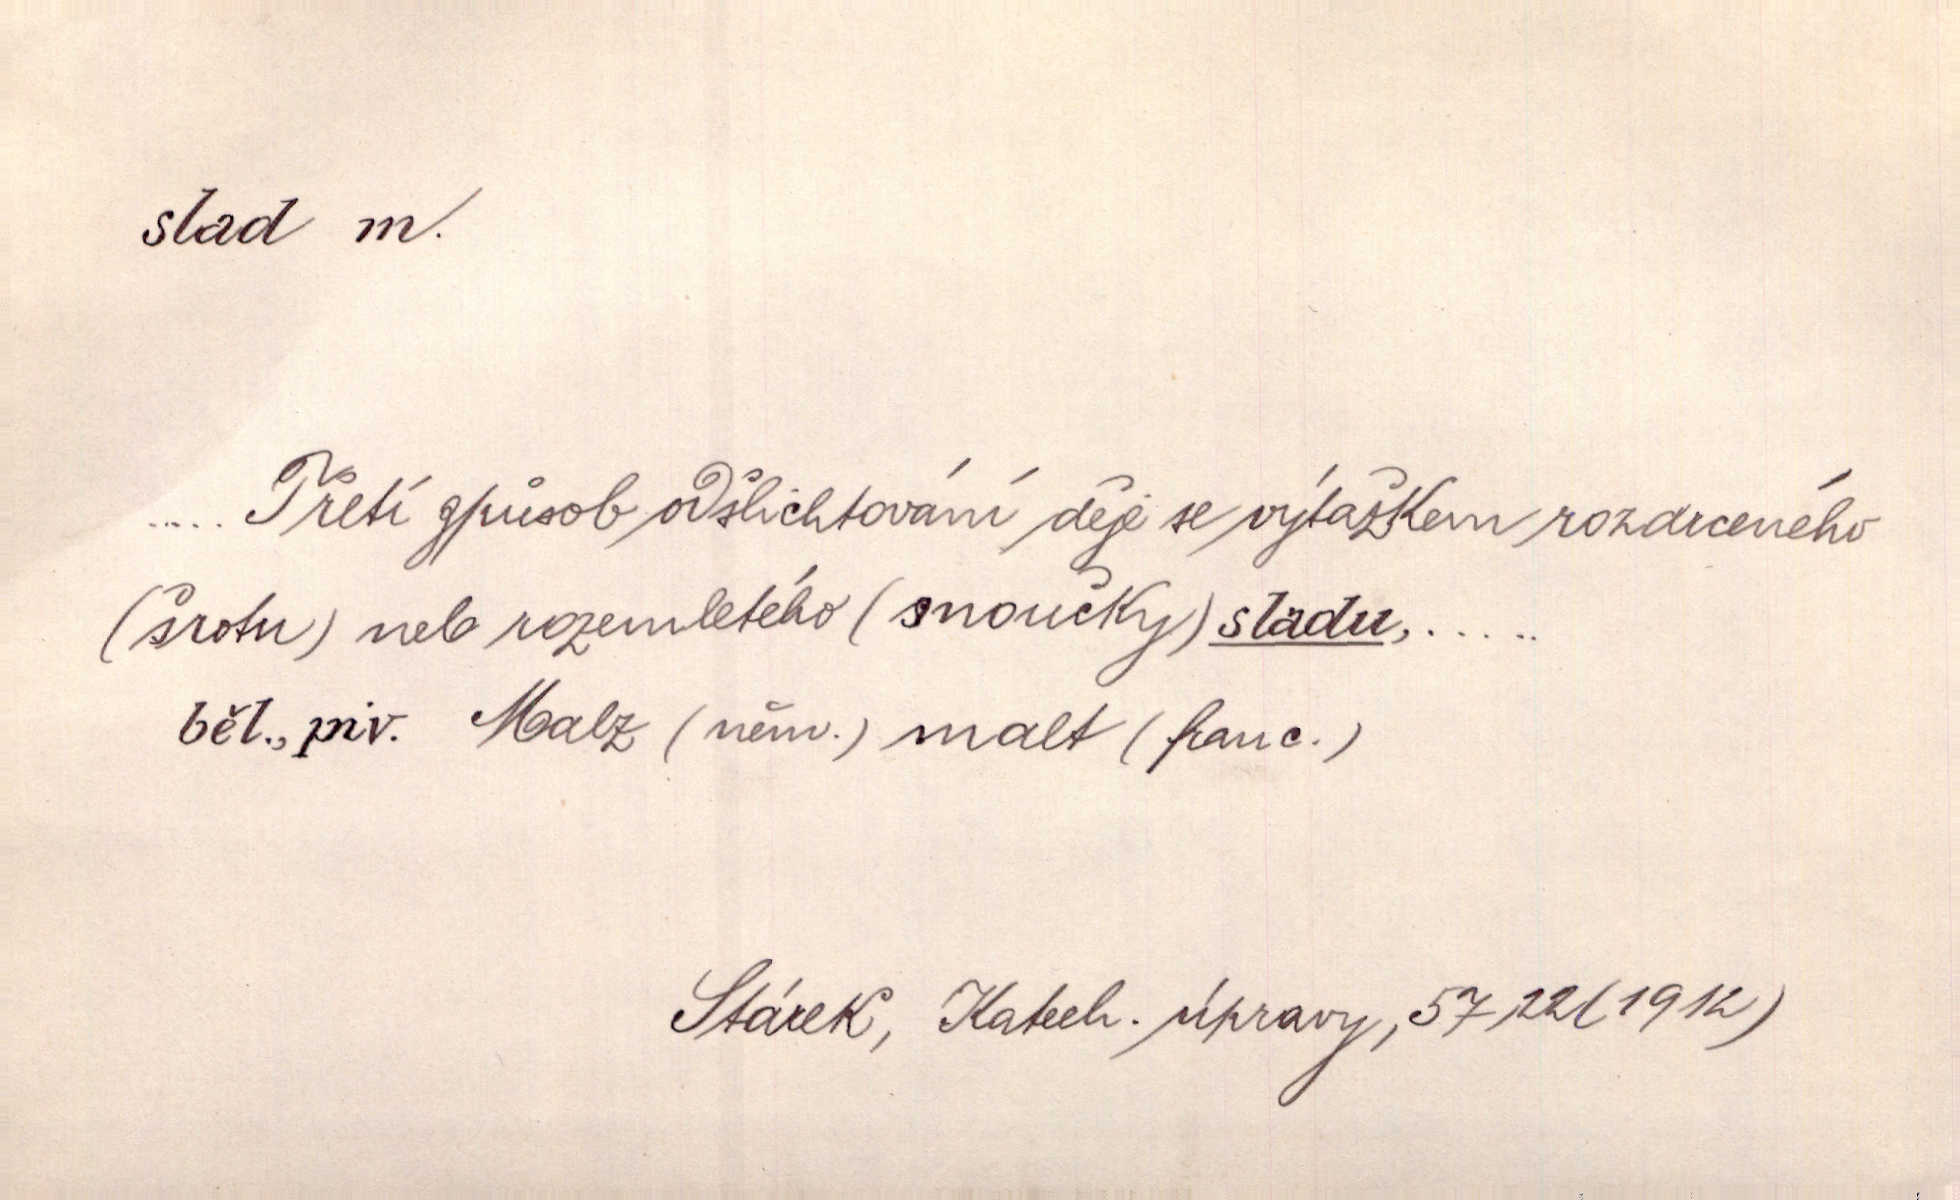 slad m.
..... Třetí způsob odšlichtování děje se výtažkem rozdrceného
(šrotu) neb rozemletého (snoučky) sladu, . . . . ..
běl., piv. Malz (něm.) malt (franc.)
Stárek, Katech. úpravy, 57, 22 (1912)